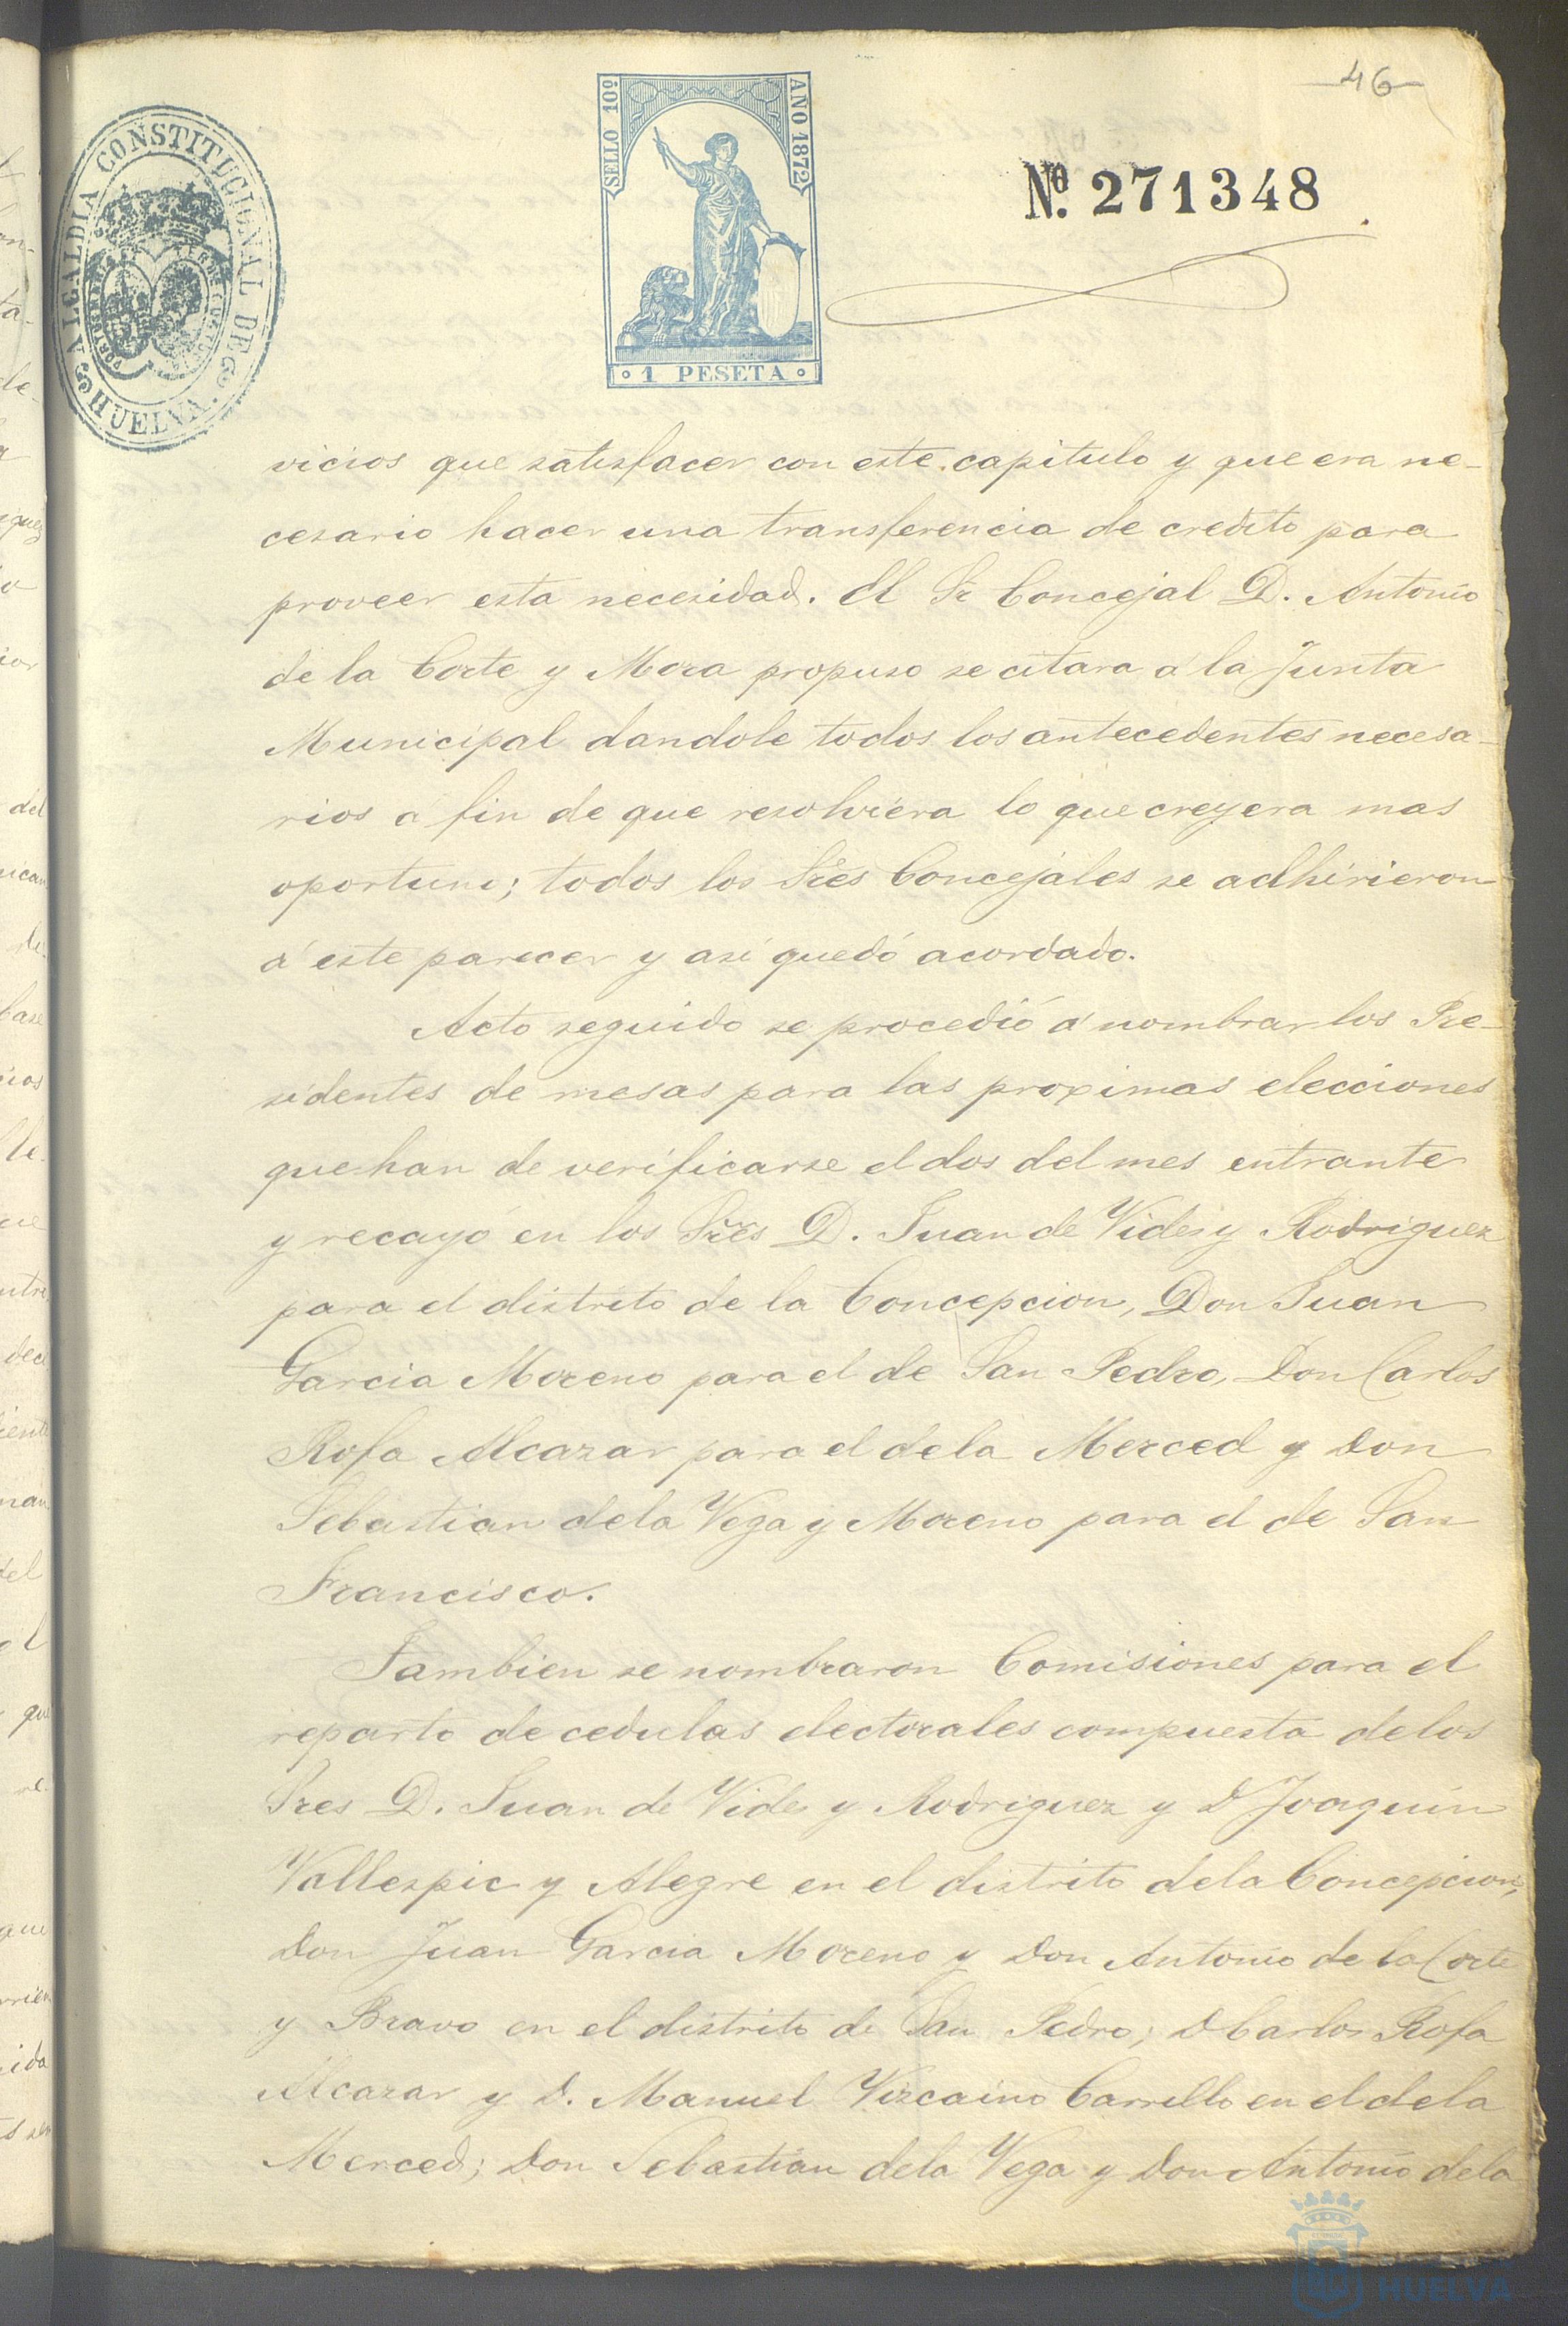 46
ALCALDIA CONSTITUCIONAL DE HUELVA.
SELLO 10º
AÑO 1872
Nº. 271348
1 PESETA
vicios que satisfacer con este capitulo y que era ne-
cesario hacer una transferencia de credito para
proveer esta necesidad. El Sr Concejal D. Antonio
de la Corte y Mora propuso se citara á la Junta
Municipal dandole todos los antecedentes necesa-
rios á fin de que resolviera lo que creyera mas
oportuno; todos los Sres Concejales se adhirieron
á este parecer y asi quedó acordado.
Acto seguido se procedió á nombrar los Pre-
sidentes de mesas para las proximas elecciones
que han de verificarse el dos del mes entrante
y recayó en los Sres D. Juan de Vides y Rodriguez
para el distrito de la Concepcion, Don Juan
Garcia Moreno para el de San Pedro, Don Carlos
Rofa Alcazar para el de la Merced y Don
Sebastian de la Vega y Moreno para el de San
Francisco.
Tambien se nombraron Comisiones para el
reparto de cedulas electorales compuesta de los
Sres D. Juan de Vides y Rodriguez y D Joaquin
Vallespic y Alegre en el distrito de la Concepcion,
Don Juan Garcia Moreno y Don Antonio de la Corte
y Bravo en el distrito de San Pedro; D Carlos Rofa
Alcazar y D. Manuel Vizcaino Carrillo en el de la
Merced; Don Sebastian de la Vega y Don Antonio de la
HUELVA